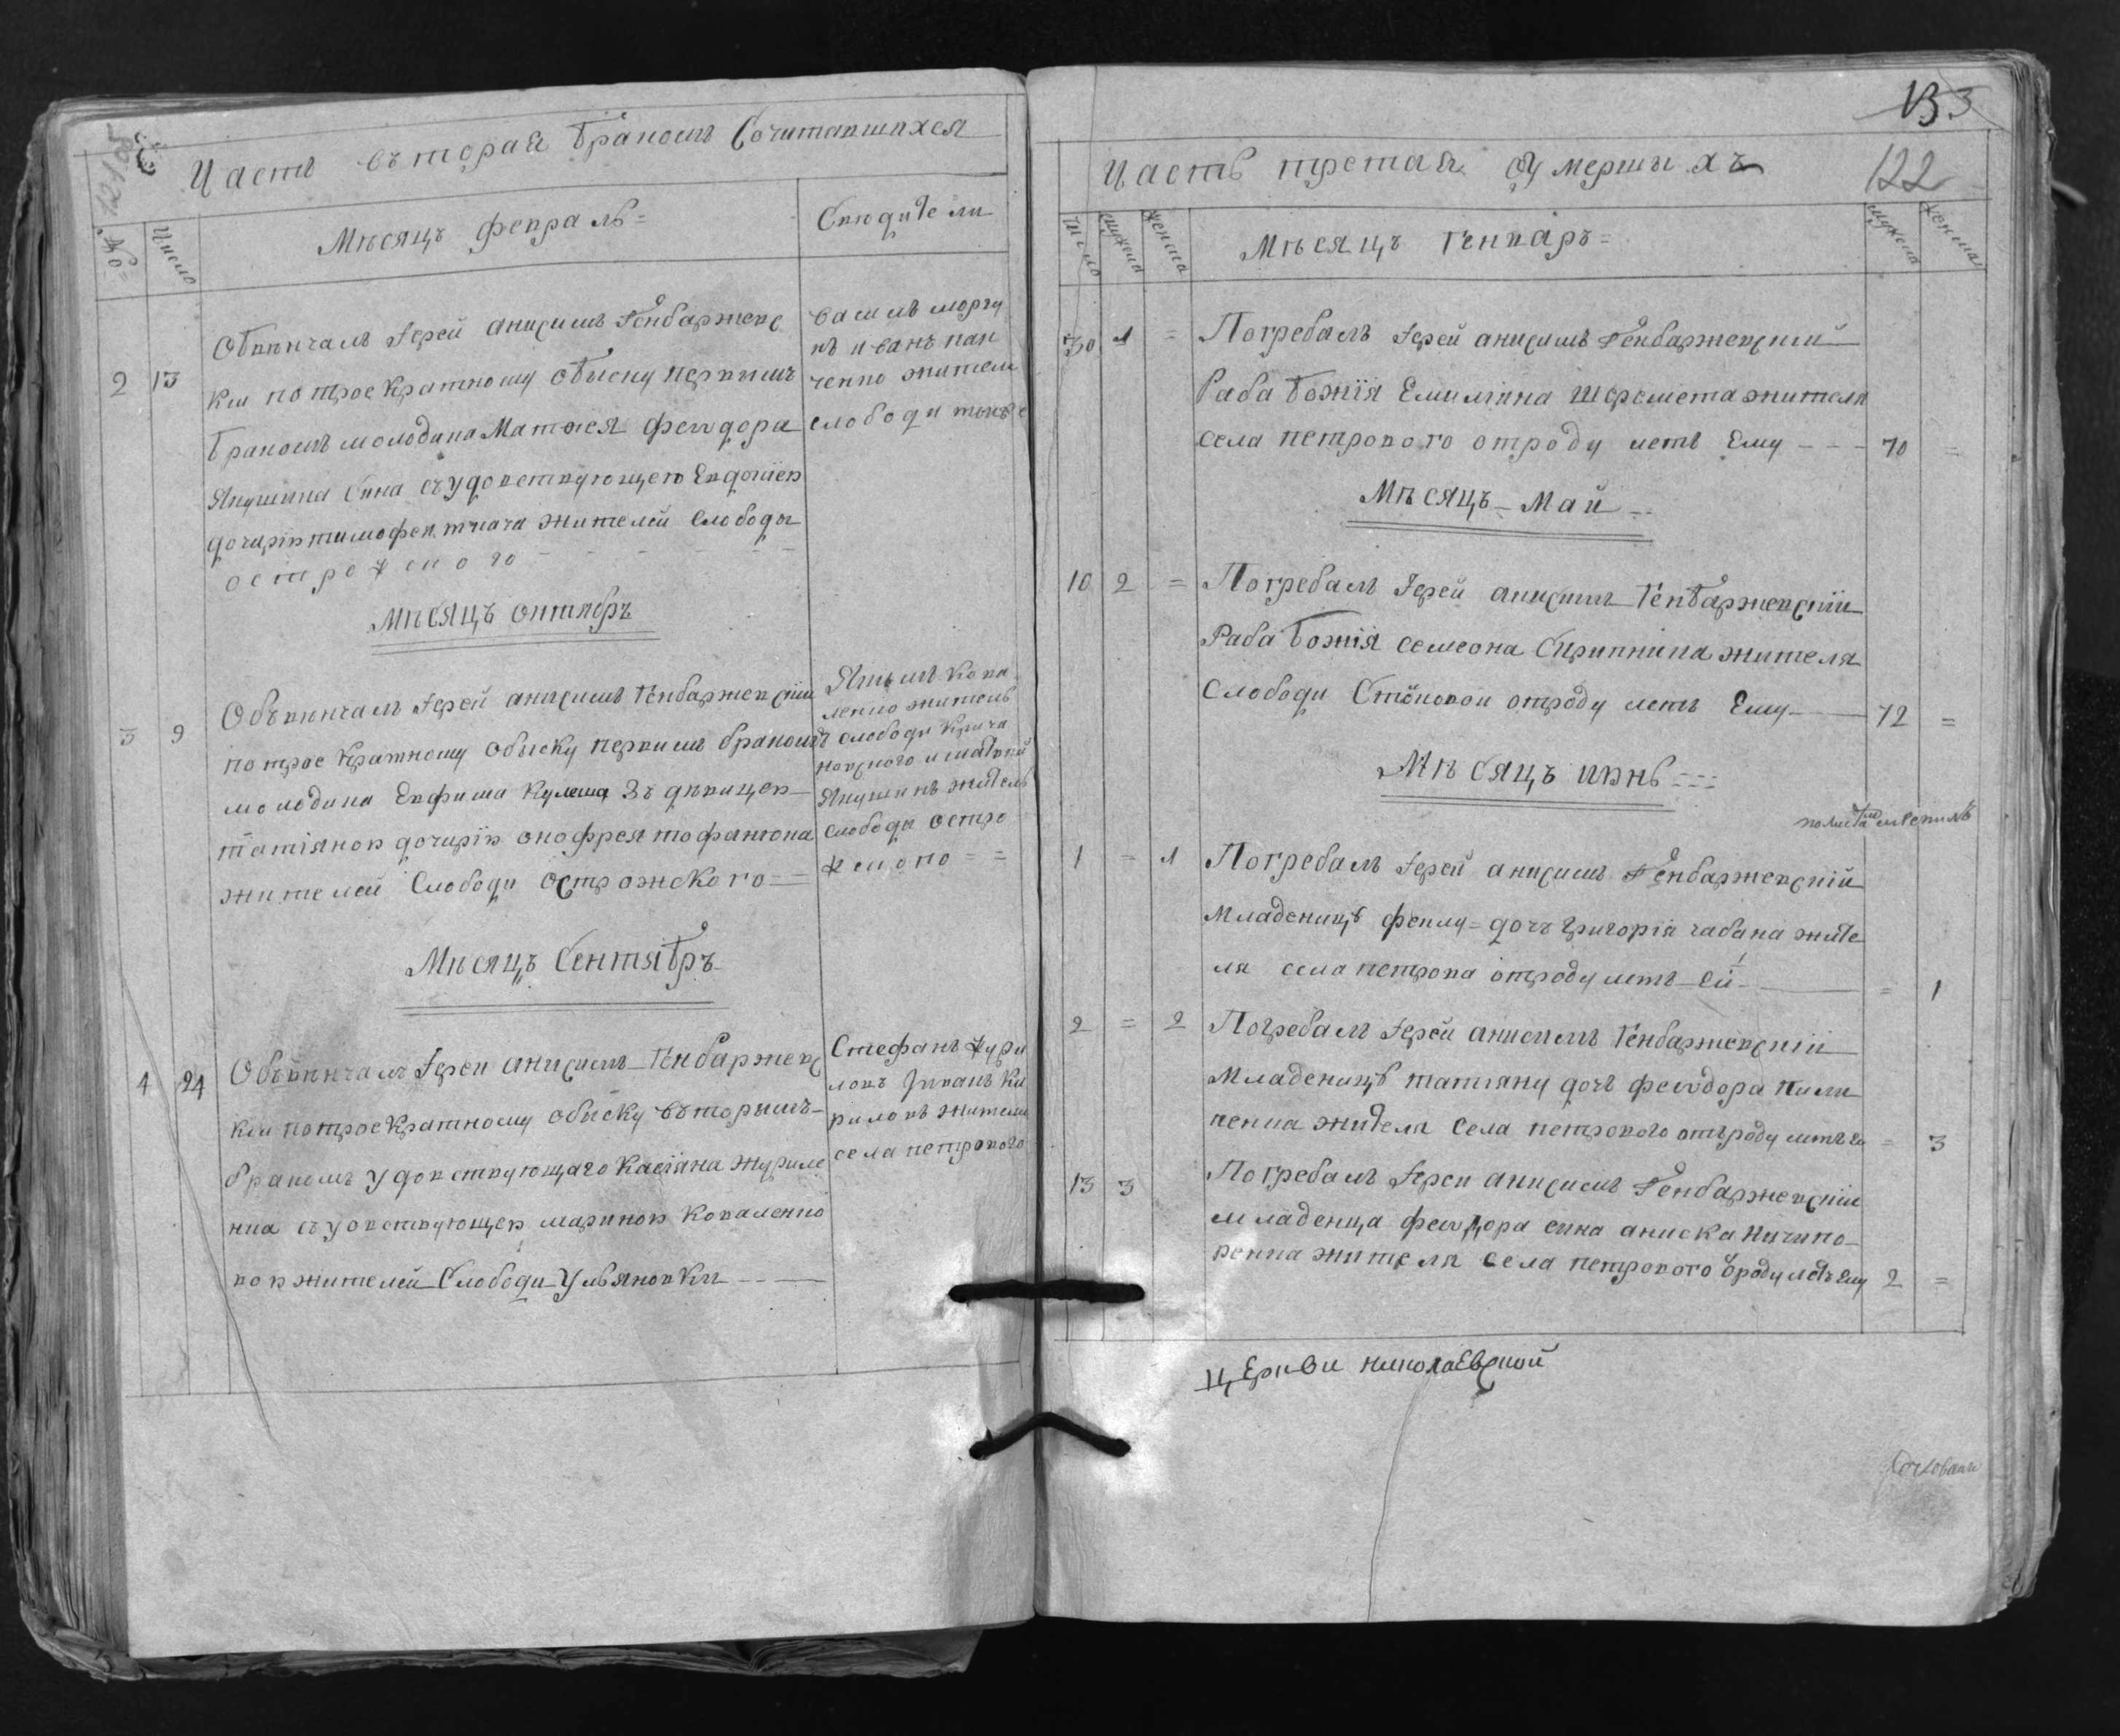 Часть въторая браком Сочитавшихся
№ Число
Мѣсяцъ февраль =
Свидители
2 13
Обвѣнчалъ Іерей анисимъ Генбаржевс
кій по троекратному обыску первымъ
бракомъ молодика Матѳея феωдора
Якушина сина съ удовствующею Евдокіею
дочерію тимофея ткача жителей слободы
острожского
василь моргу
нъ иванъ пан
ченко жители
слободи
Мѣсяцъ октябръ
3 9
Обвѣнчалъ Іерей анисимъ Генбаржевскій
по троекратному обыску первимъ бракомъ
молодика Евфима Кулеша Зъ дѣвицею
татіяною дочерію онофрея
жителей Слободи острожского =
Якимъ Кова
ленко житель
слободи
Якушинъ житель
слободи остро
жского = =
Мѣсяцъ Сентябръ
4 24
Объвѣнчалъ Іереи анисимъ Генбаржевс
кій потроекратному обыску въторымъ
бракомъ удовствующаго Касіяна журиле
нка съ удовствующею мариною Коваленко
вою жителей Слободи Ульяновки
Стефанъ жури
локъ Іиванъ Ки
рилокъ жители
села петрового
133
122
Часть претая Оумершыхъ
Число мужеска женска
Мѣсяцъ Генваръ =
мужеска женска
30 1 =
Погребалъ Іерей анисимъ Генбаржевскій
Раба Божія Емиліяна Шеремета жителя
села петрового отроду летъ Ему - - - 70 =
Мѣсяцъ Май
10 2 =
Погребалъ Іерей анисимъ Генбаржевскій
Раба Божія семеона Скрипника жителя
Слободи отроду летъ Ему 72 =
Мѣсяцъ июнь
1 = 1
Погребалъ Іерей анисимъ Генбаржевскій
Младеницъ феклу = дочъ Григорія чабана жите
ля села петрова отроду летъ ей = 1
2 = 2
Погребалъ Іерей анисимъ Генбаржевскій
Младеницъ татіану дочъ феωдора Пили
пенка жителя Села петрового отъроду летъ = 3
13 3
Погребалъ Іереи анисимъ Генбаржевскій
младенца феωдора сина аниска Ничипо
ренка жителя села петрового ѿроду летъ Ему 2 =
церкви николаевской